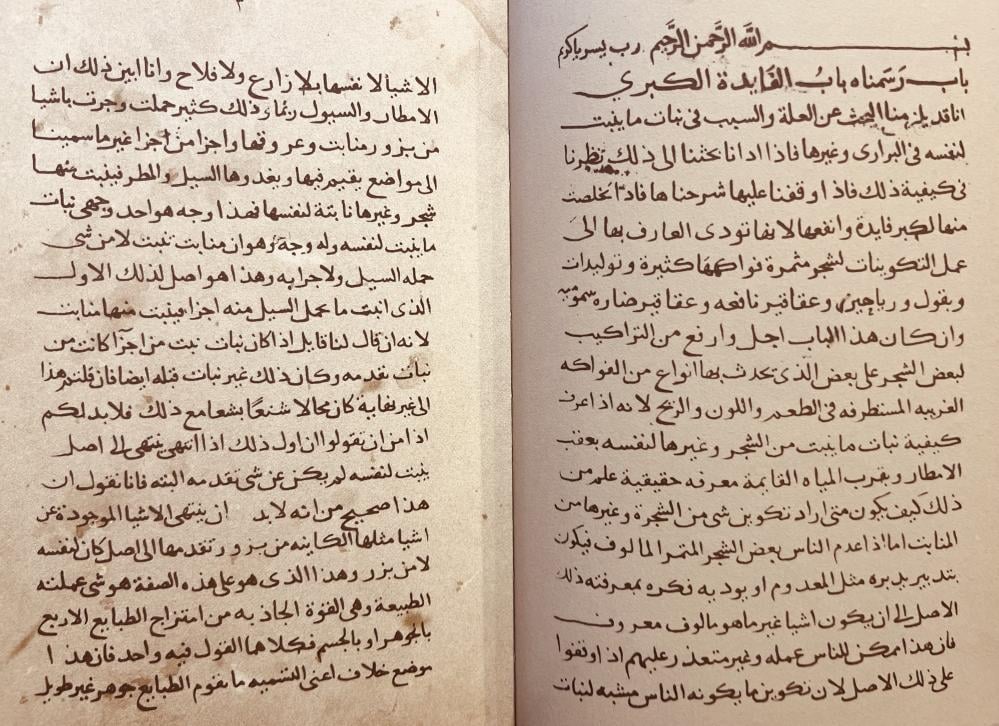 بسم الله الرحمن الرحيم رب يسر ياكريم
باب رسمناه باب الفايدة الكبرى
انا قد يلزمنا البحث عن العلة والسبب فى نبات ما ينبت
لنفسه فى البرارى وغيرها فاذا ادانا بحثنا الى ذلك نظرنا
فى كيفية ذلك فاذا وقفنا عليها شرحناها فاذا تخلصت
منها لكبر فايدة وانفعها لانها تودى العارف بها الى
عمل التكوينات لشجر مثمرة فواكهها كثيرة وتوليدات
وبقول ورياحين وعقاقير نافعه وعقاقير ضاره سمومية
وان كان هذا الباب اجل وارفع من التراكيب
لبعض الشجر على بعض الذى تحدث بها انواع من الفواكه
الغريبه المستظرفه فى الطعم واللون والريح لانه اذا عرف
كيفية نبات ما ينبت من الشجر وغيرها لنفسه بعقب
الامطار وبقرب المياه القايمة معرفه حقيقية علم من
ذلك كيف يكون متى اراد تكوين شى من الشجرة وغيرها من
المنابت اما اذا عدم الناس بعض الشجر المثمر المالوف فيكون
بتدبير يدبره مثل المعدوم او يوديه فكره بمعرفته ذلك
الاصل الى ان يكون اشيا غير ما هو مالوف معروف
فان هذا ممكن للناس عمله وغير متعذر عليهم اذا وقفوا
على ذلك الاصل لان تكوين ما يكونه الناس مشبه لنبات
الاشيا لا نفسها بلا زارع ولا فلاح وانا ابين ذلك ان
الامطار والسيول ربما وذلك كثير حملت وجرت باشيا
من بزور منابت وعروقها واجزا من اجزا غيرها سمينا
الى مواضع يقيم فيها وبعدوها السيل والمطر فينبت منها
شجر وغيرها نابتة لنفسها فهذا وجه هو احد وجهى نبات
ما ينبت لنفسه وله وجه وهو ان منابت تنبت لا من شى
حمله السيل ولا جرا به وهذا هو اصل لذلك الاول
الذى انبت ما يحمل السيل منه اجزا فينبت منها منابت
لانه ان قال لنا قايل اذا كان نبات نبت من اجزا كانت من
نبات تقدمه وكان ذلك غير نبات قبله ايضا فان قلتم هذا
الى غير نهاية كان محالا شنعا بشعا مع ذلك فلا بد لكم
اذا من ان تقولوا ان اول ذلك اذا انتهى ينتهى الى اصل
ينبت لنفسه لم يكن عن شى تقدمه البته فانا نقول ان
هذا صحيح من انه لا بد ان ينتهى الاشيا الموجودة عن
اشيا مثلها الكاينه من بزور تقدمها الى اصل كان لنفسه
لا من بزر وهذا الذى هو على هذه الصفة هو شى عملته
الطبيعة وهى القوة الجاذبه من امتزاج الطبايع الاربع
بالجوهر او بالجسم فكلاهما القول فيه واحد فان هذا
موضع خلاف اعنى التسميه ما يقوم الطبايع جوهر غير طويل